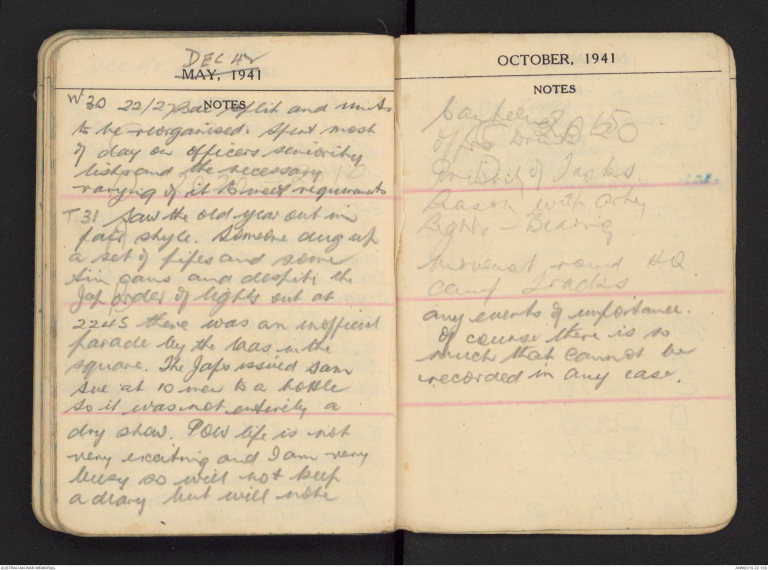 DEC 42
MAY, 1941
NOTES
W 30 22/27 Bdes split and units
to be reorganised. Spent most
of day on officers seniority
lists and the necessary
varying of it to meet requirements
T 31 Saw the old year out in
fair style. Someone dug up
a set of pipes and some
tin cans and despite the
Jap order of lights out at
2245 there was an inofficial
parade by the in the
square. The Japs issued Sam
Sue at 10 men to a bottle
so it was not entirely a
dry show. POW life is not
very exciting and I am very
busy so will not keep
a diary but will note
OCTOBER, 1941
NOTES
of
of Tasks.
Liason with Arty
Lights - Bearing
Movement round HQ
Camp Tracks
any events of importance.
Of course there is so
much that cannot be
recorded in any case.
AUSTRALIAN WAR MEMORIAL